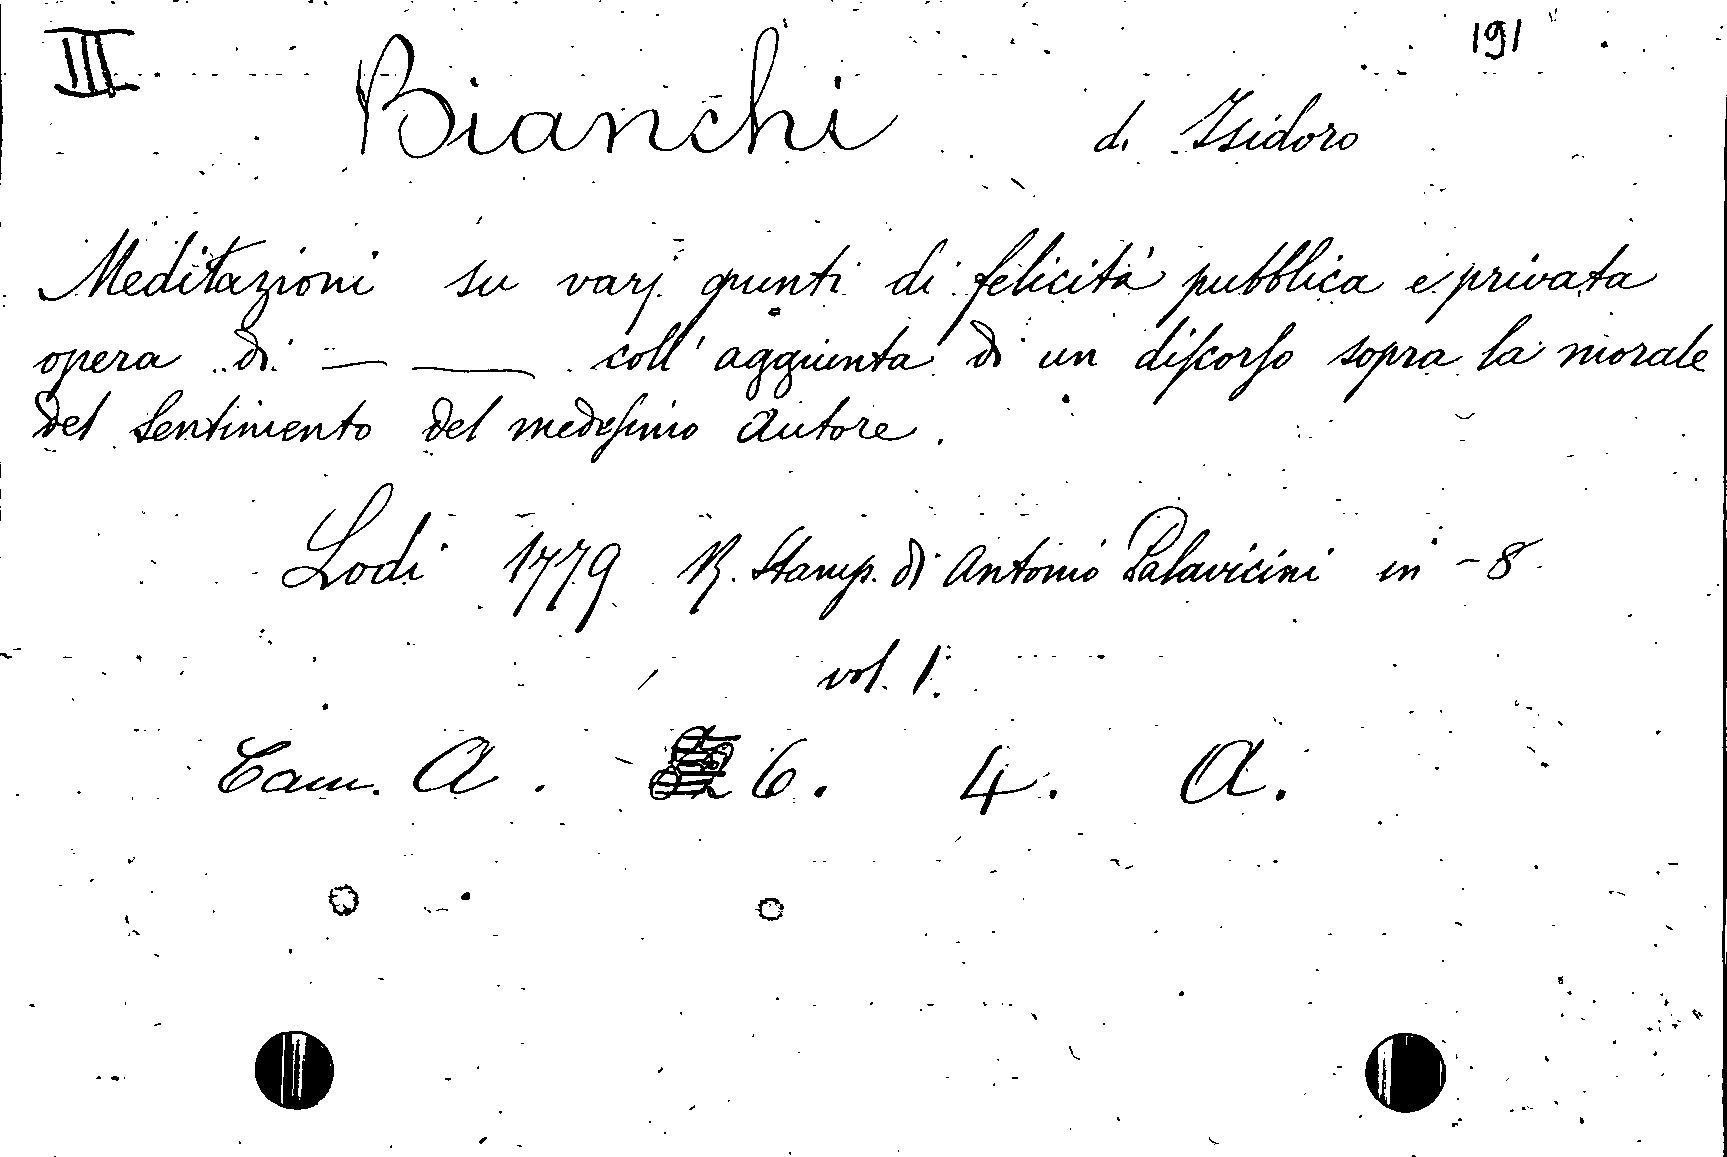 III 191
Bianchi d. Isidoro
Meditazioni su varj punti di felicità pubblica e privata
opera di — — coll' aggiunta di un diſcorſo sopra la morale
del sentimento del medeſimo autore.
Lodi 1779 R. Stamp. di Antonio Palavicini in - 8
vol. 1.
Cam. A. 6. 4. A.